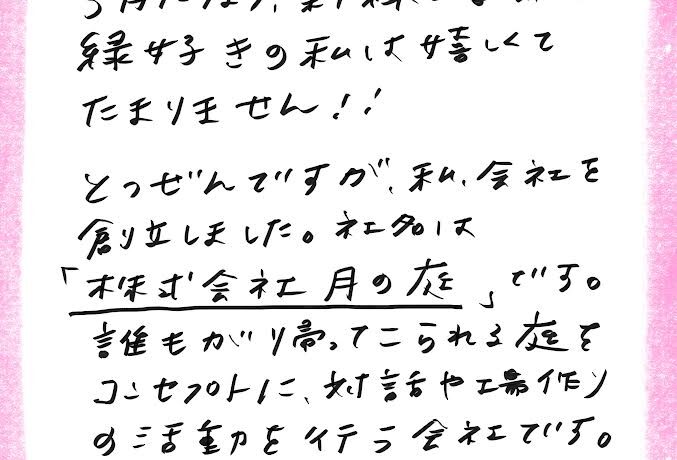 緑好きの私は嬉しくて
たまりません!!
とつぜんですが、私、会社を
創立しました。社名は
「株式会社 月の庭」です。
誰もがり帰ってこられる庭を
コンセプトに、対話や場作り
の活動を行う会社です。